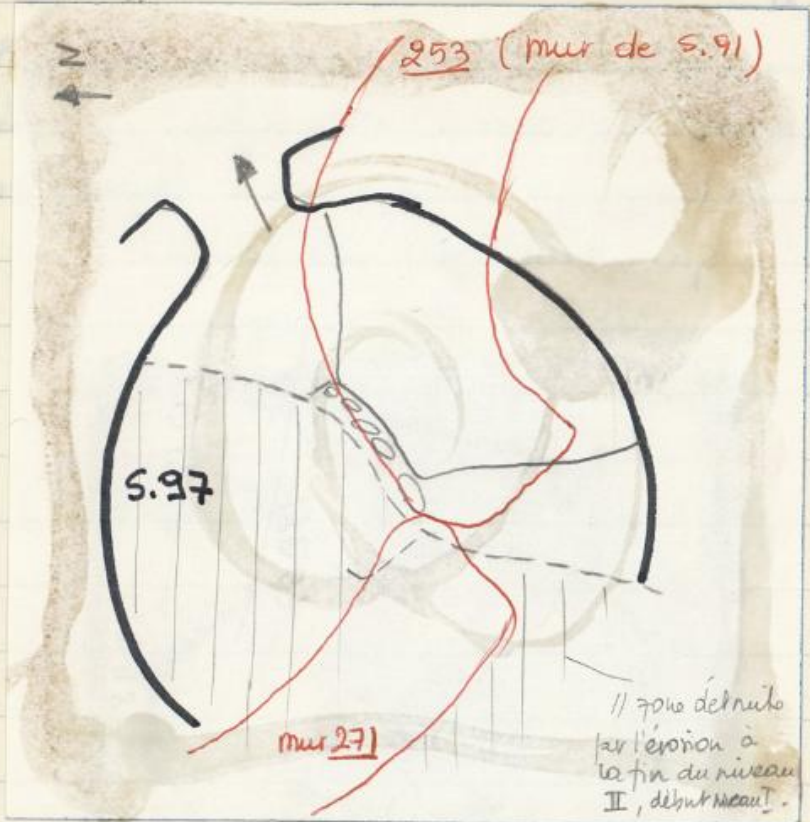 N
253 (mur de S.91)
S.97
mur 271
// zone détruite
par l'érosion à
la fin du niveau
II, début niveau I.